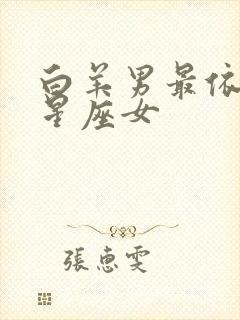 白羊男最依
星座女
張惠雯